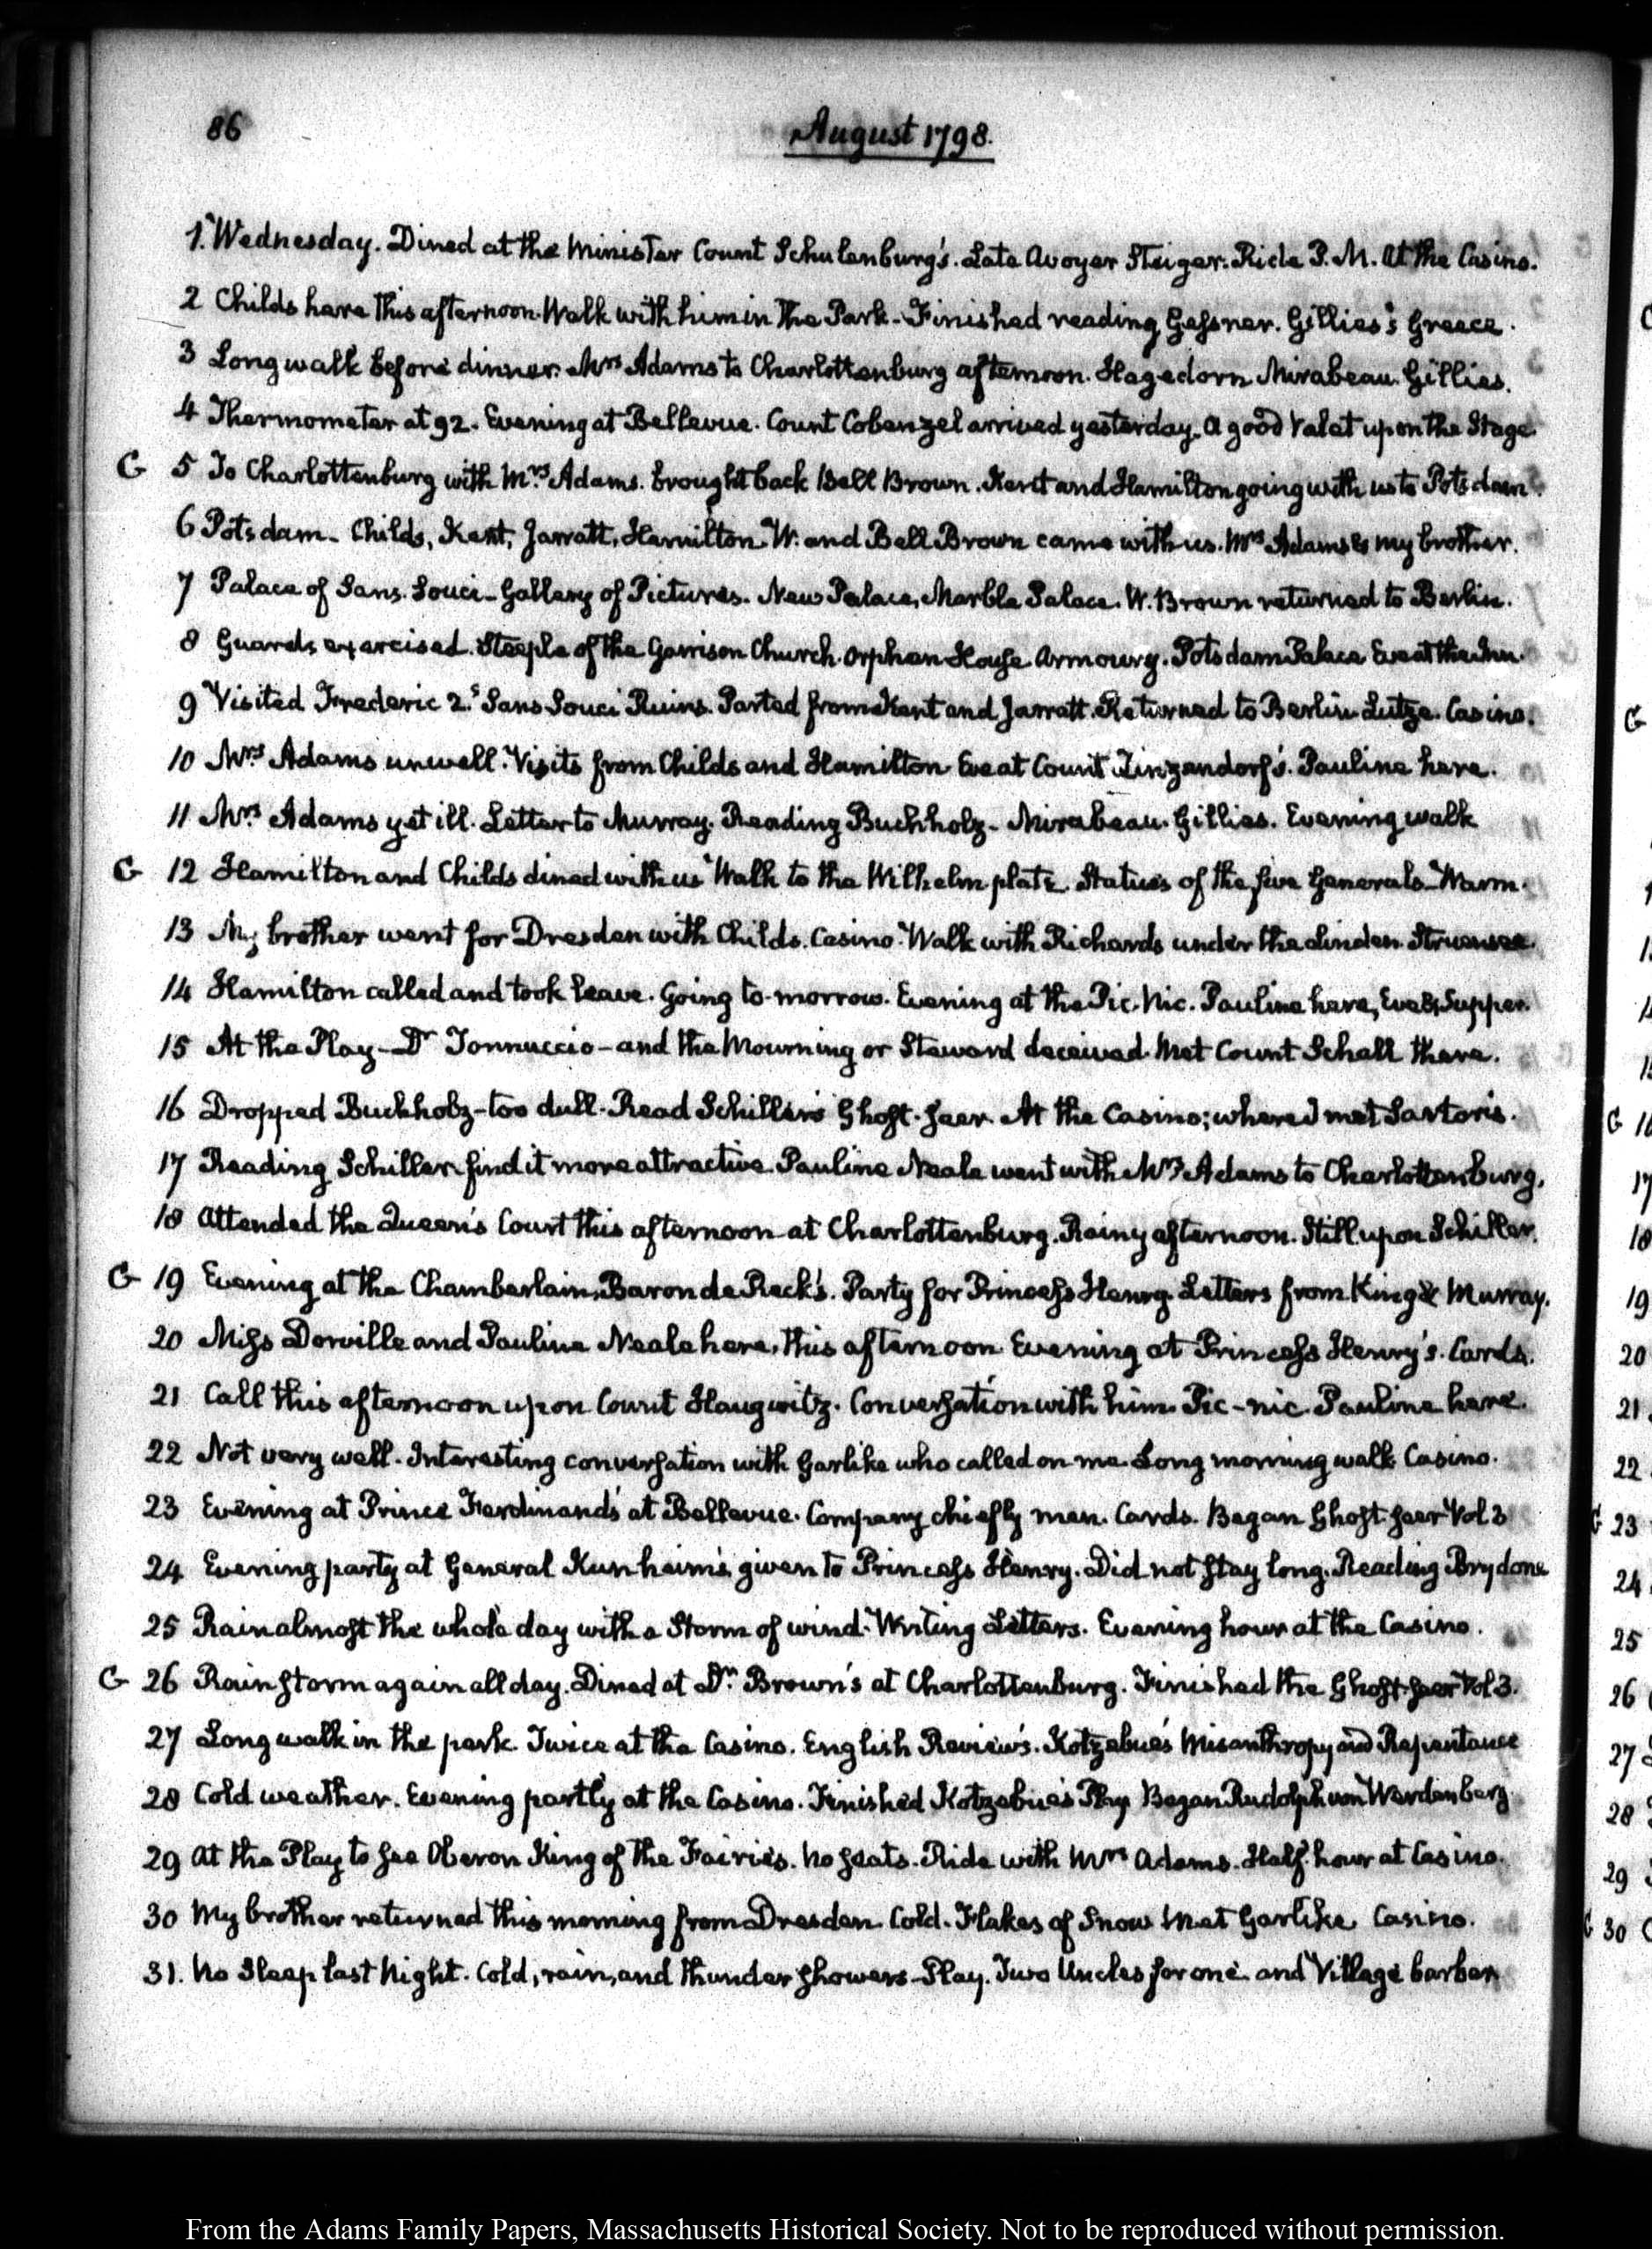 86
August 1798.
1. Wednesday. Dined at the Minister Count Schulenburg's. Late Avoyer Steiger. Ride P.M. At the Casino.
2 Childs here this afternoon. Walk with him in the Park. Finished reading Gessner. Gillies's Greece.
3 Long walk before dinner. Mrs Adams to Charlottenburg afternoon. Hagedorn Mirabeau. Gillies.
4 Thermometer at 92. Evening at Bellevue. Count Cobenzel arrived yesterday. A good Valet upon the Stage.
G 5 To Charlottenburg with Mrs Adams. brought back Bell Brown. Kent and Hamilton going with us to Potsdam.
6 Potsdam. Childs, Kent, Jarratt, Hamilton W. and Bell Brown came with us. Mrs Adams & my brother.
7 Palace of Sans. Souci – Gallery of Pictures. New Palace, Marble Palace. W. Brown returned to Berlin.
8 Guards exercised. Steeple of the Garrison Church. Orphan House Armoury. Potsdam Palace Eve at the Inn.
9 Visited Frederic 2.s Sans Souci Ruins. Parted from Kent and Jarratt. Returned to Berlin. Lutze. Casino.
10 Mrs Adams unwell. Visits from Childs and Hamilton Eve at Count Zinzendorf's. Pauline here.
11 Mrs Adams yet ill. Letter to Murray. Reading Buchholz – Mirabeau. Gillies. Evening walk
G 12 Hamilton and Childs dined with us Walk to the Wilhelm platz. Statues of the five Generals – Warm.
13 My brother went for Dresden with Childs. Casino. Walk with Richards under the linden. Struensee.
14 Hamilton called and took leave. Going to-morrow. Evening at the Pic. Nic. Pauline here, Eve & Supper.
15 At the Play – Dr Tonnuccio – and the Mourning or Steward deceived. Met Count Schall there.
16 Dropped Buchholz – too dull. Read Schiller's Ghost-seer. At the Casino; where I met Sartoris.
17 Reading Schiller. find it more attractive. Pauline Neale went with Mrs Adams to Charlottenburg.
18 Attended the Queen's Court this afternoon at Charlottenburg. Rainy afternoon. Still upon Schiller.
G 19 Evening at the Chamberlain, Baron de Reck's. Party for Princess Henry. Letters from King & Murray.
20 Miss Dorville and Pauline Neale here, this afternoon Evening at Princess Henry's. Cards.
21 Call this afternoon upon Count Haugwitz. Conversation with him. Pic-nic. Pauline here.
22 Not very well. Interesting conversation with Garlike who called on me. Long morning walk Casino.
23 Evening at Prince Ferdinand's at Bellevue. Company chiefly men. Cards. Began Ghost-seer Vol 3
24 Evening party at General Kunheim's given to Princess Henry. Did not stay long. Reading Brydone
25 Rain almost the whole day with a Storm of wind. Writing Letters. Evening hour at the Casino.
G 26 Rain storm again all day. Dined at Dr. Brown's at Charlottenburg. Finished the Ghost-seer Vol 3.
27 Long walk in the park. Twice at the Casino. English Reviews. Kotzebue's Misanthropy and Repentance
28 Cold weather. Evening partly at the Casino. Finished Kotzebue's Play Began Rudolph von Werdenberg.
29 At the Play to see Oberon King of the Fairies. No seats. Ride with Mrs Adams. Half hour at Casino.
30 My brother returned this morning from Dresden. Cold. Flakes of Snow Met Garlike Casino.
31. No Sleep last Night. Cold, rain, and thunder showers. Play. Two Uncles for one and Village barber
From the Adams Family Papers, Massachusetts Historical Society. Not to be reproduced without permission.